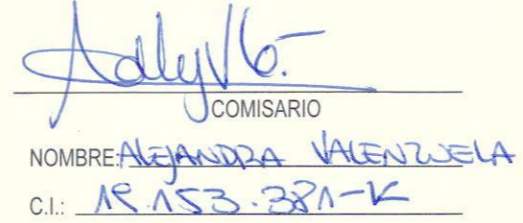 COMISARIO
NOMBRE: ALEJANDRA VALENZUELA
C.I.: 19.153.381-K